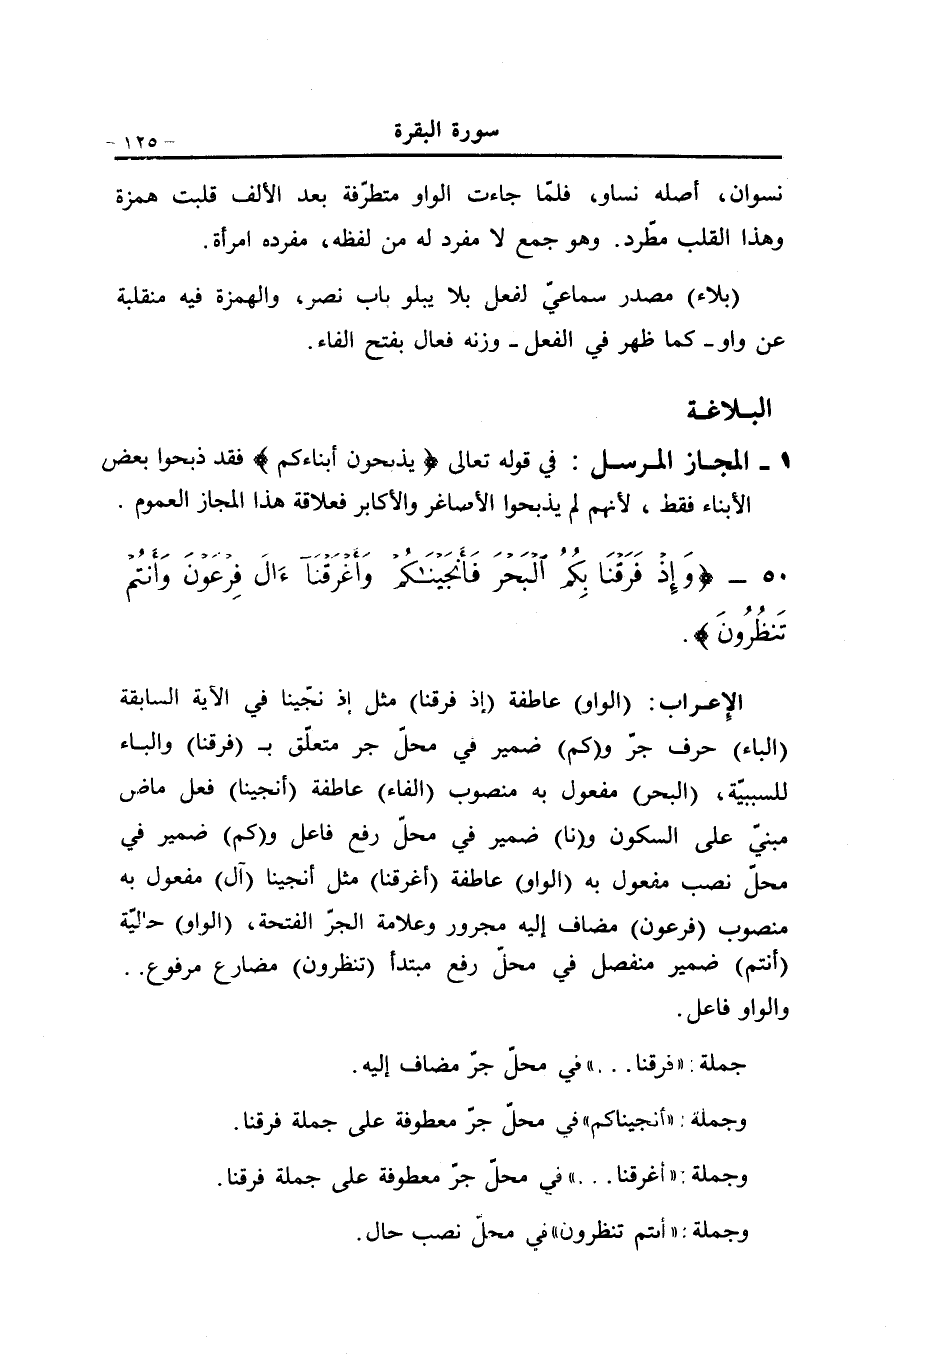 سورة البقرة
- ١٢٥ -
نسوان، أصله نساو، فلمّا جاءت الواو متطرّفة بعد الألف قلبت همزة
وهذا القلب مطّرد. وهو جمع لا مفرد له من لفظه، مفرده امرأة.
(بلاء) مصدر سماعيّ لفعل بلا يبلو باب نصر، والهمزة فيه منقلبة
عن واو ـ كما ظهر في الفعل ـ وزنه فعال بفتح الفاء.
البلاغة
١ ـ المجاز المرسل : في قوله تعالى ﴿ يذبحون أبناءكم ﴾ فقد ذبحوا بعض
الأبناء فقط ، لأنهم لم يذبحوا الأصاغر والأكابر فعلاقة هذا المجاز العموم .
٥٠ ـ ﴿وَإِذْ فَرَقْنَا بِكُمُ ٱلْبَحْرَ فَأَنجَيْنَٰكُمْ وَأَغْرَقْنَآ ءَالَ فِرْعَوْنَ وَأَنتُمْ
تَنظُرُونَ﴾.
الإعراب: (الواو) عاطفة (إذ فرقنا) مثل إذ نجّينا في الآية السابقة
(الباء) حرف جرّ و(كم) ضمير في محلّ جر متعلّق بـ (فرقنا) والباء
للسببيّة، (البحر) مفعول به منصوب (الفاء) عاطفة (أنجينا) فعل ماض
مبنيّ على السكون و(نا) ضمير في محلّ رفع فاعل و(كم) ضمير في
محلّ نصب مفعول به (الواو) عاطفة (أغرقنا) مثل أنجينا (آل) مفعول به
منصوب (فرعون) مضاف إليه مجرور وعلامة الجرّ الفتحة، (الواو) حاليّة
(أنتم) ضمير منفصل في محلّ رفع مبتدأ (تنظرون) مضارع مرفوع. .
والواو فاعل.
جملة: «فرقنا. . .» في محلّ جرّ مضاف إليه.
وجملة: «أنجيناكم» في محلّ جرّ معطوفة على جملة فرقنا.
وجملة: «أغرقنا. . .» في محلّ جرّ معطوفة على جملة فرقنا.
وجملة: «أنتم تنظرون» في محلّ نصب حال.